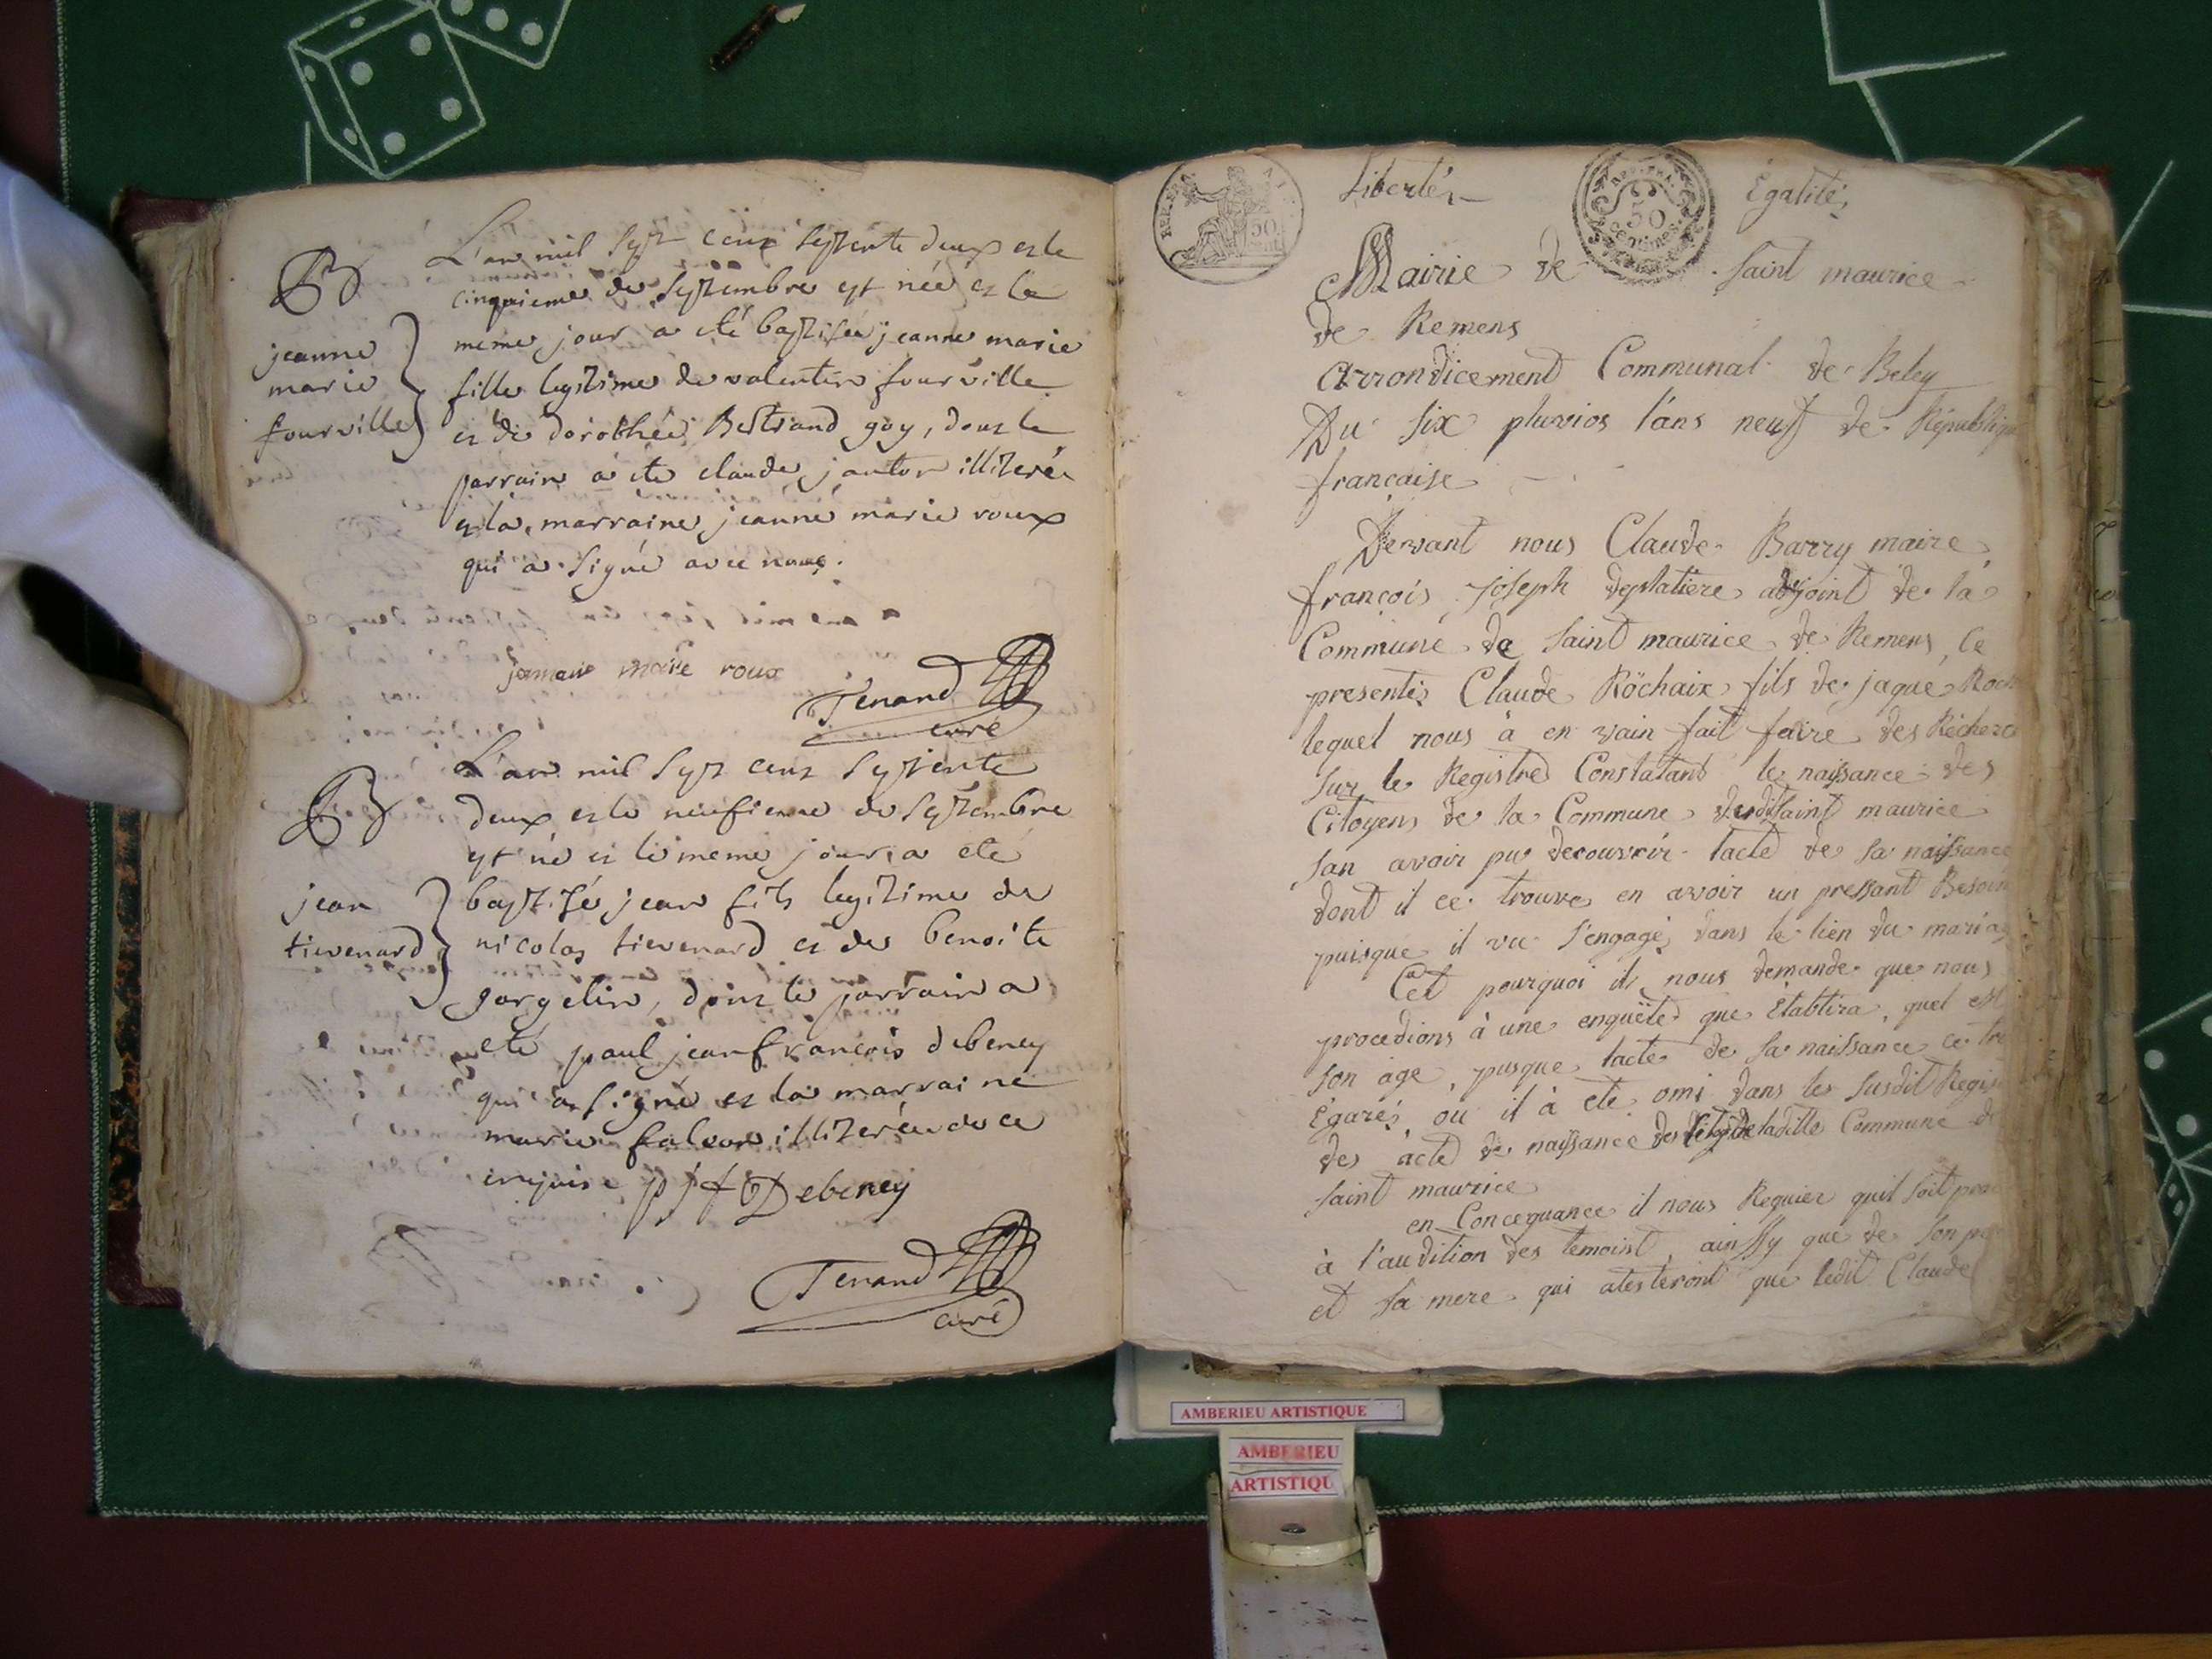 B
jeanne
marie
fourville
L'an mil sept cent septente deux et le
cinquieme de septembre est née et le
meme jour a eté baptisée jeanne marie
fille legitime de valentin fourville
et de dorothée Bertrand goy, dont le
parrain a été claude janton illiteré
et la marraine jeanne marie roux
qui a signé avec nous.
jeanne marie roux
Tenand
curé
B
jean
tievenard
L'an mil sept cent septente
deux et le neufieme de septembre
est né et le meme jour a eté
baptisé jean fils legitime de
nicolas tievenard et de benoite
gorgelin, dont le parrain a
eté paul jean francois debeney
qui a signé et la marraine
marie falcon illiterée de ce
enquise PJF Debeney
Tenand
curé
REP. FRA.
50
Liberté,
50
centimes
Égalité,
Mairie de saint maurice
de Remens
Arrondicement Communal de Beley
Du six pluvios l'ans neuf de Républiqu
française
Devant nous Claude Barry maire
françois joseph deplatiere adjoint de la
Commune de saint maurice de Remens, ce
presenté Claude Rochaix fils de jaque Roch
lequel nous à en vain fait faire des Récherc
sur le Registre Constatant le naissance des
Citoyens de la Commune dudit saint maurice
san avoir pu decouvrir l'acte de sa naissance
dont il ce trouve en avoir un pressant Besoin
puisque il va s'engagé dans le lien du maria
Cet pourquoi il nous demande que nous
procedions à une enquête que Etablira quel est
son age, pusque l'acte de sa naissance ce tr
Egaré, ou il à eté omi dans le susdit Regis
des acte de naissance des de ladite Commune d
saint maurice
en Concequance il nous Requier quil soit pro
à l'audition des temoint, ainssy que de son pe
et sa mere qui atesteront que ledit Claude
AMBERIEU ARTISTIQUE
AMBERIEU
ARTISTIQU